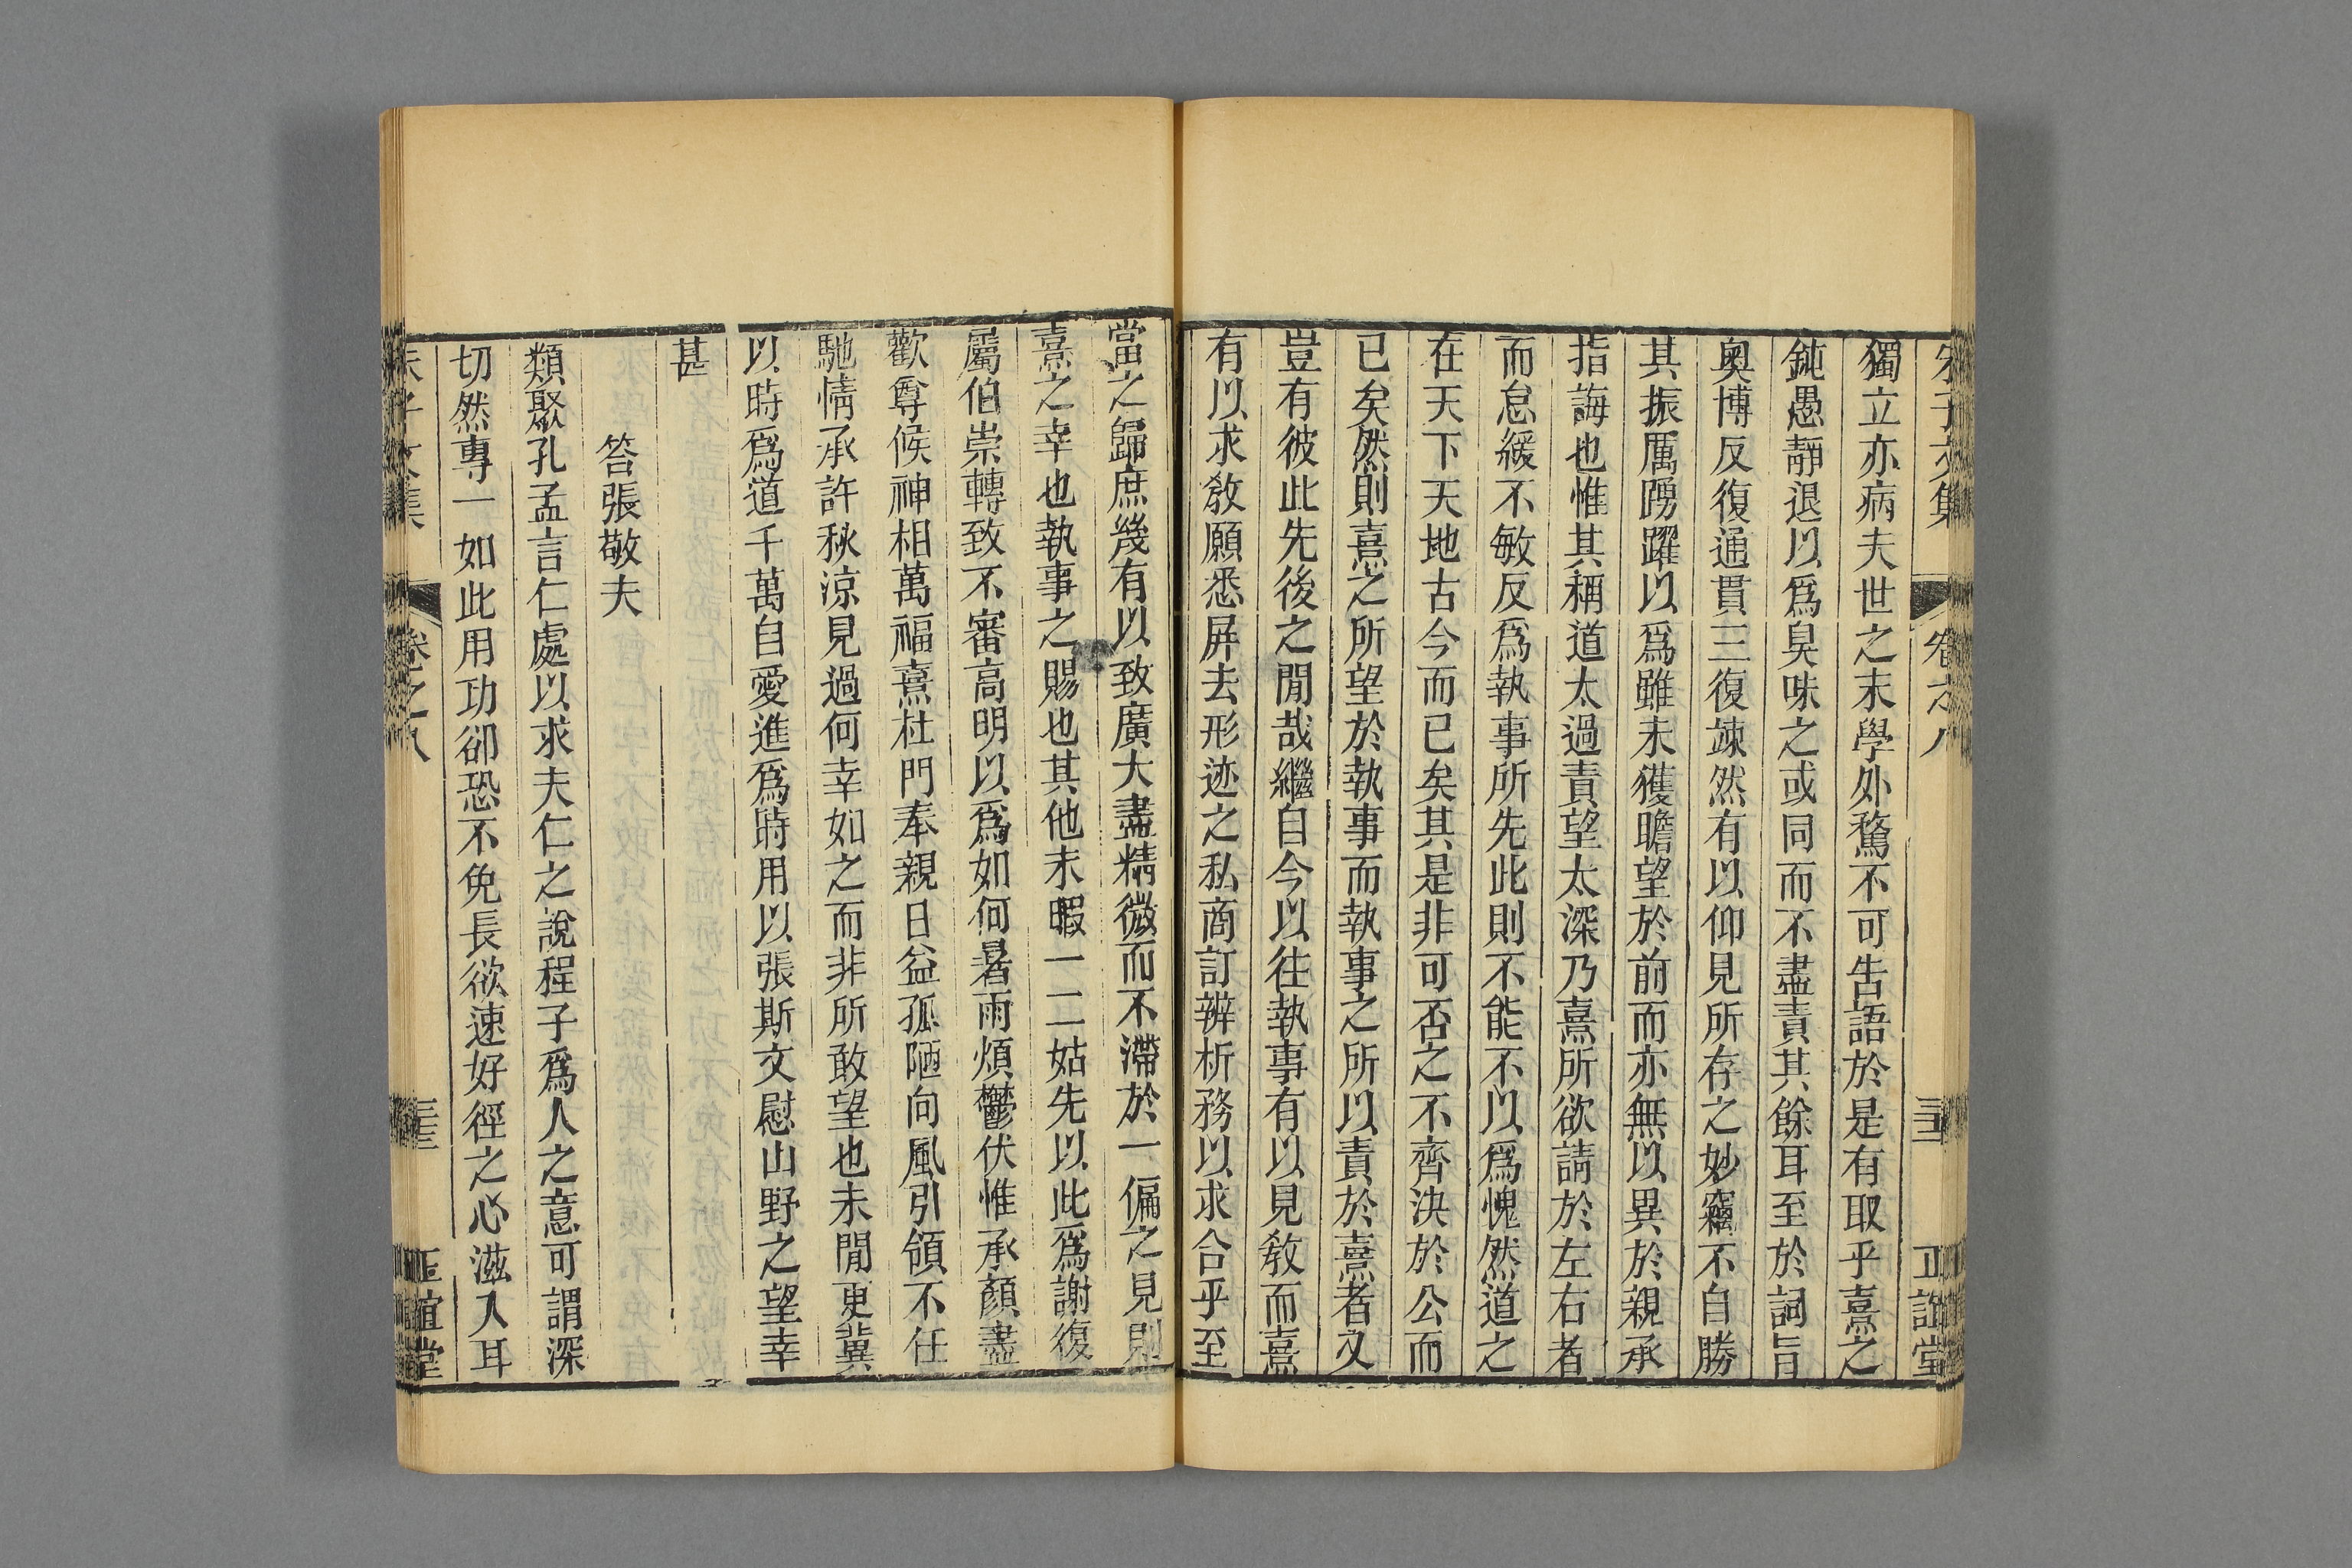 朱子文集 卷之八 正誼堂
獨立亦病夫世之末學外騖不可告語於是有取乎熹之
鈍愚靜退以爲臭味之或同而不盡責其餘耳至於詞旨
奧博反復通貫三復竦然有以仰見所存之妙竊不自勝
其振厲踴躍以爲雖未獲瞻望於前而亦無以異於親承
指誨也惟其稱道太過責望太深乃熹所欲請於左右者
而怠緩不敏反爲執事所先此則不能不以爲愧然道之
在天下天地古今而已矣其是非可否之不齊決於公而
已矣然則熹之所望於執事而執事之所以責於熹者又
豈有彼此先後之閒哉繼自今以往執事有以見敎而熹
有以求敎願悉屛去形迹之私商訂辨析務以求合乎至
當之歸庶幾有以致廣大盡精微而不滯於一偏之見則
熹之幸也執事之賜也其他未暇一二姑先以此爲謝復
屬伯崇轉致不審高明以爲如何暑雨煩鬱伏惟承顏盡
歡尊候神相萬福熹杜門奉親日益孤陋向風引領不任
馳情承許秋涼見過何幸如之而非所敢望也未閒更冀
以時爲道千萬自愛進爲時用以張斯文慰山野之望幸
甚
答張敬夫
類聚孔孟言仁處以求夫仁之說程子爲人之意可謂深
切然專一如此用功卻恐不免長欲速好徑之心滋入耳
朱子文集 卷之八 正誼堂